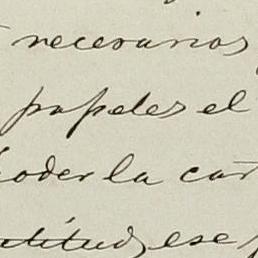 necesarios
papeles el
poder la car
atitud, ese